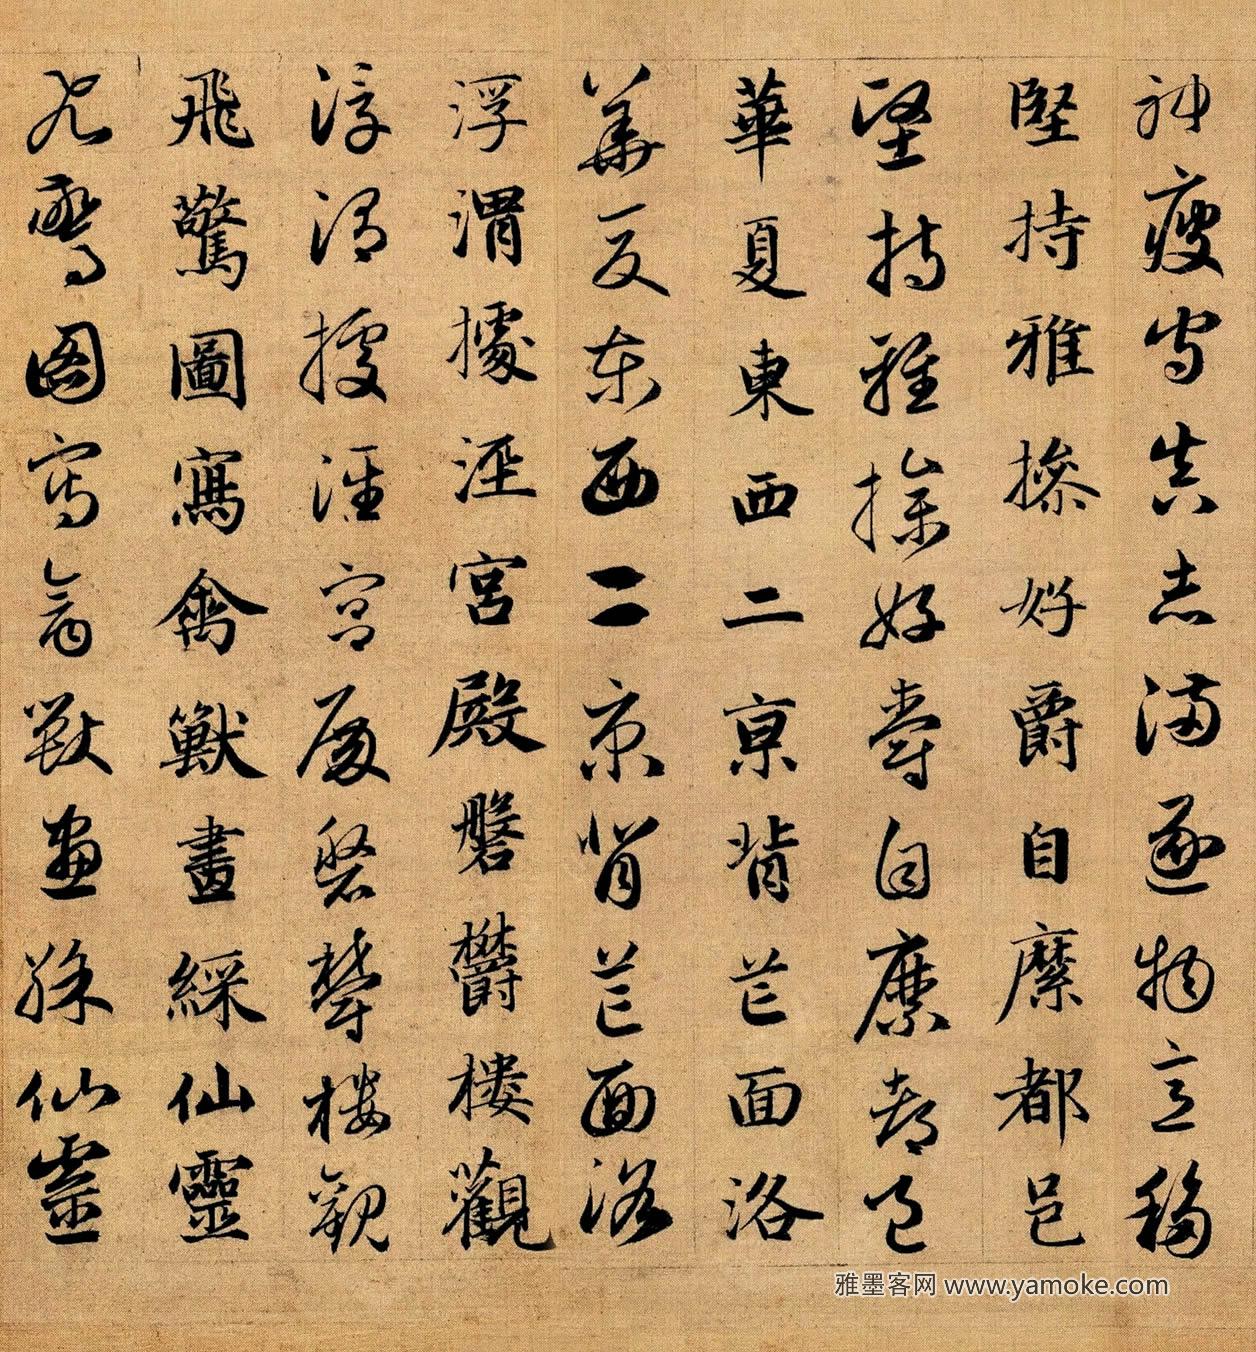 神疲守真志滿逐物意移
堅持雅操好爵自縻都邑
堅持雅操好爵自縻都邑
華夏東西二京背芒面洛
華夏東西二京背芒面洛
浮渭據涇宮殿磐鬱樓觀
浮渭據涇宮殿磐鬱樓觀
飛驚圖寫禽獸畫綵仙靈
飛驚圖寫禽獸畫綵仙靈
雅墨客网 www.yamoke.com